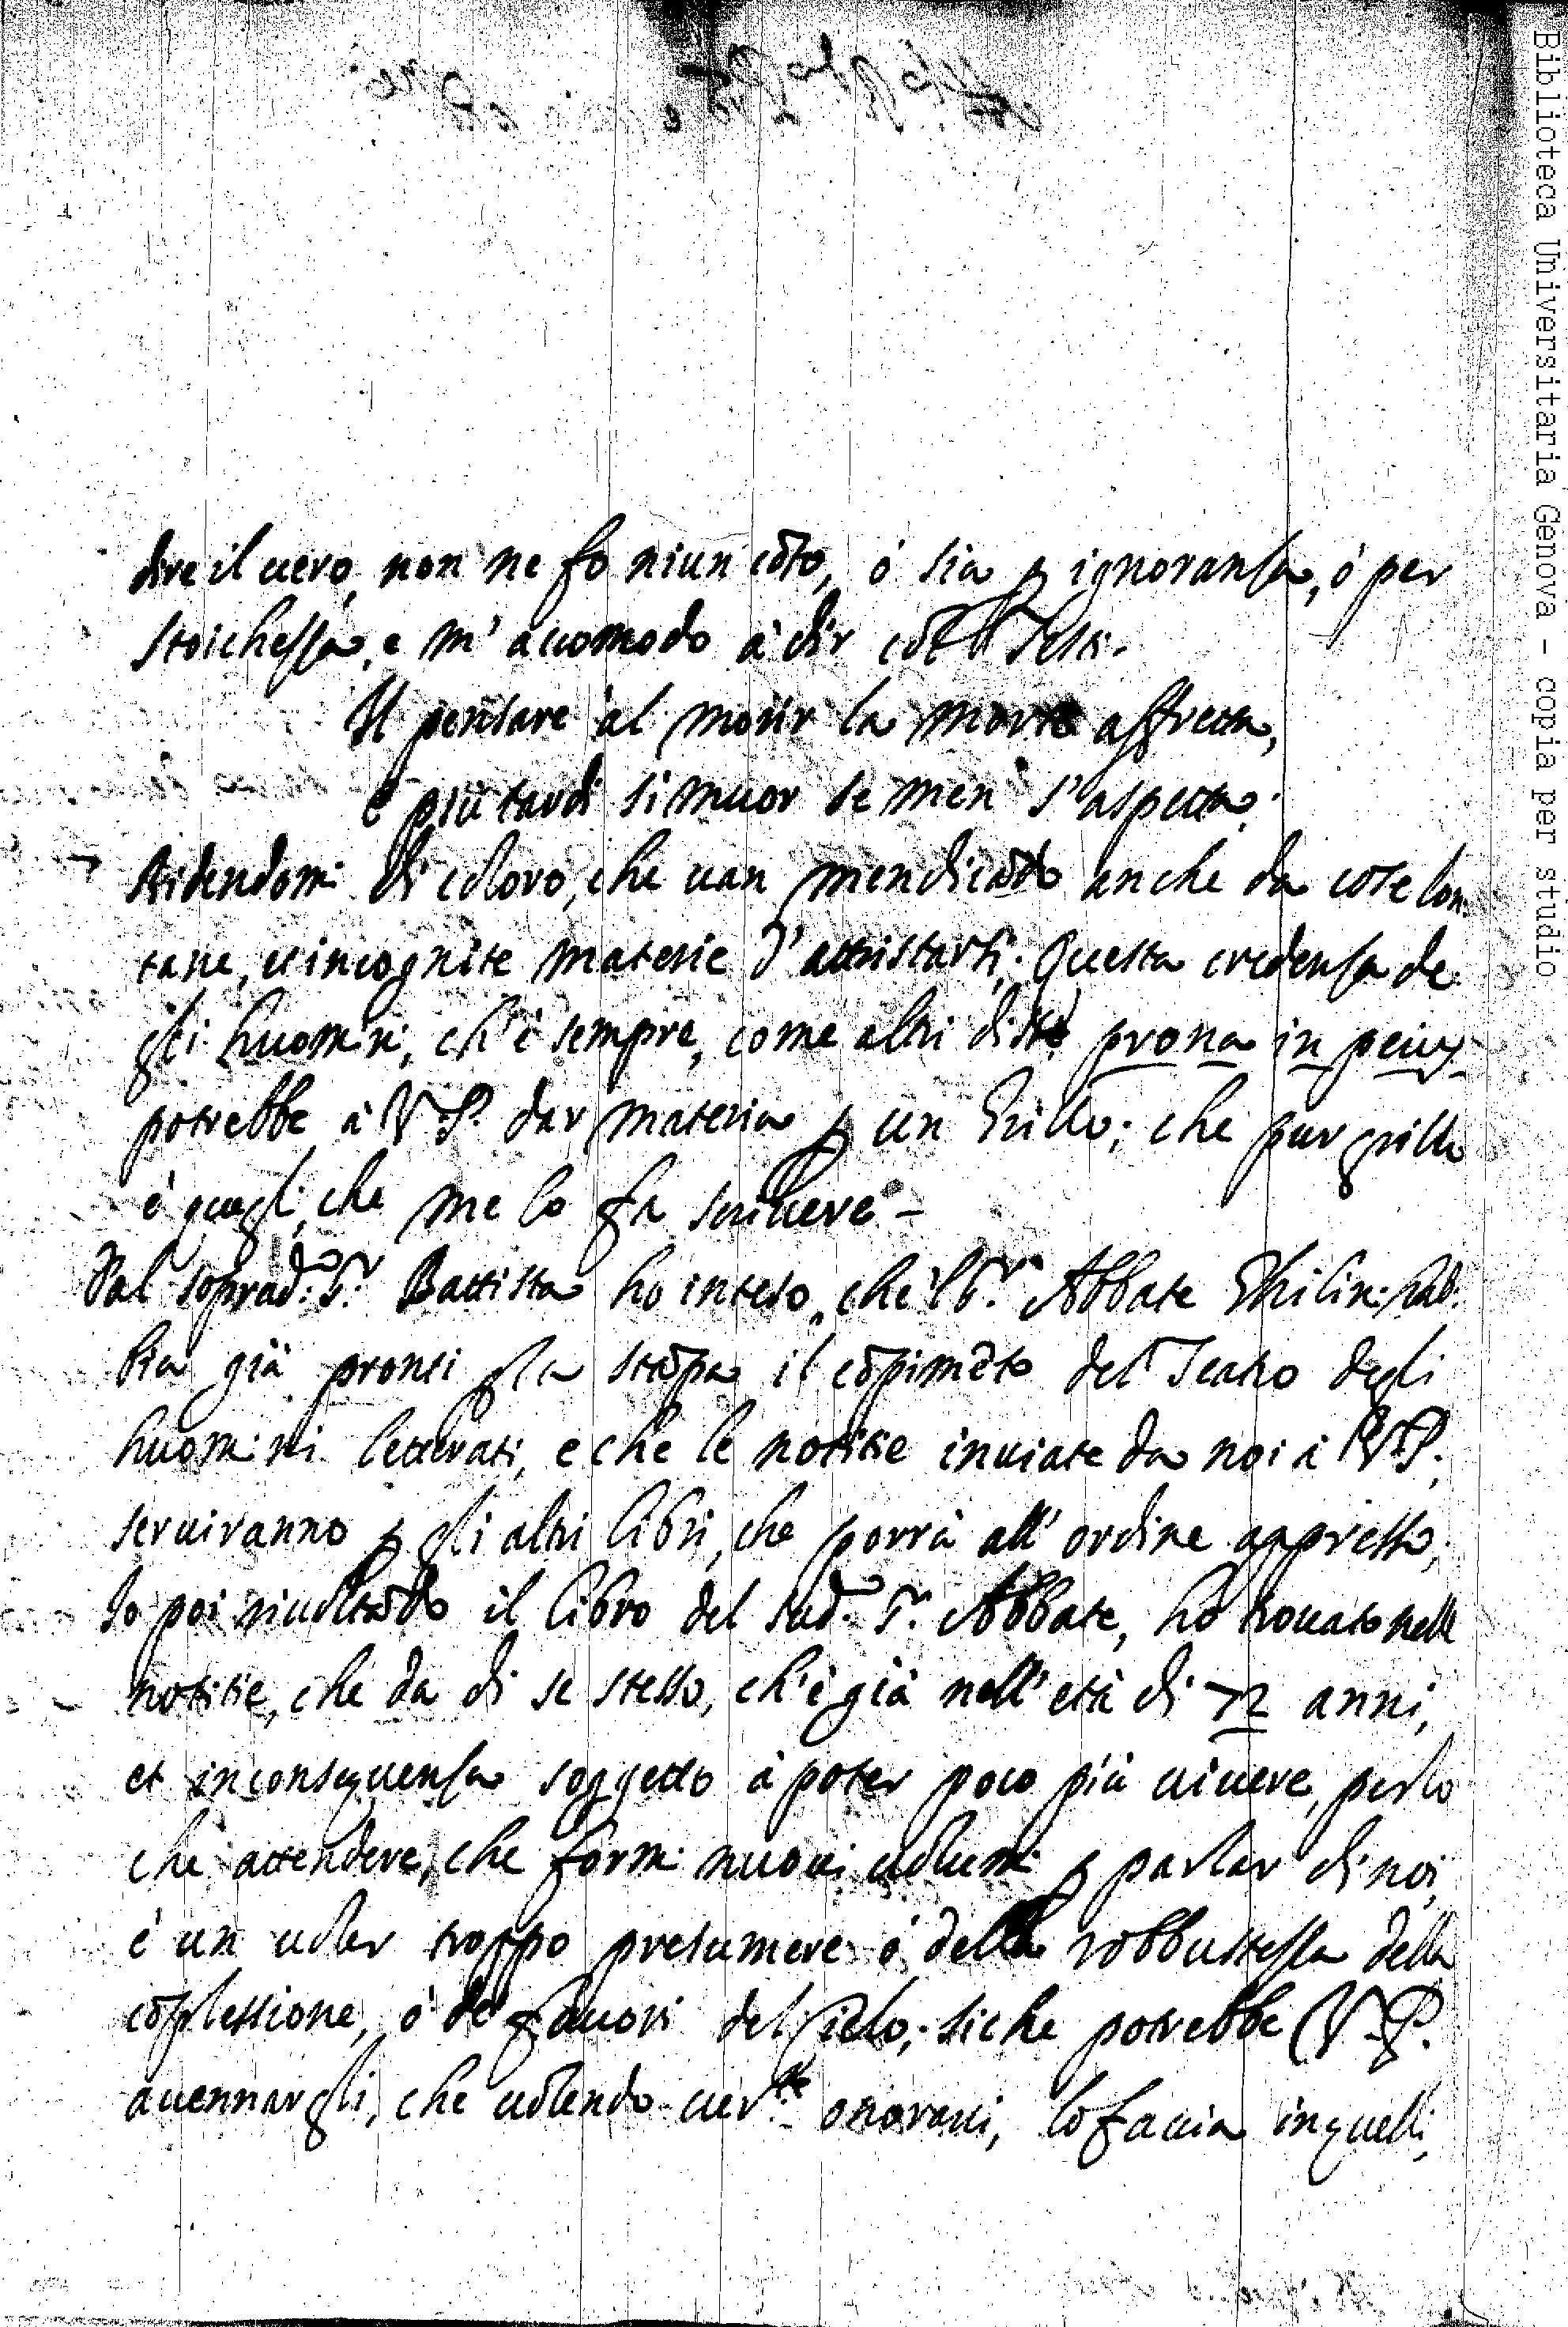 dire il uero, non ne fo niun cōto, ò sia ꝑ ignoransa, ò per
stoichessa, e m' accomodo à dir col Testi.
Il pensare al morir la morte affretta,
e più tardi si muor se men s'aspetta.
Ridendomi di coloro, che uan mendicādo anche da cose lon
tane, et incognite materie d'attristarsi. Questa credensa de
gli huomini, ch'è sempre, come altri disse prona in peius
potrebbe à V.S. dar materia ꝑ un Grillo; che pur grillo
è quegli, che me lo fa scriuere -
Dal soprad.º S.r Battista ho inteso, che'l S.r Abbate Ghilin: hab:
bia già pronti ꝑ la stāpa il cōpimēto del Teatro degli
huomini letterati, e che le notitie inuiate da noi à V.S.
seruiranno ꝑ gli altri libri, che porrà all' ordine appresso;
Io poi riuoltādo il libro del sud.º S.r Abbate, ho trouato nelle
notitie, che da di se stesso, ch'è già nell' età di 72 anni,
et inconsequensa soggetto à poter poco più uiuere, perlo
che attendere, che formi nuoui uolumi ꝑ parlar di noi,
è un uoler troppo presumere ò della robbustessa della
cōplessione, ò de fauori del Cielo; siche potrebbe V.S.
accennargli, che uolendo uer.te onorarci, lo faccia in quelli,
Biblioteca Universitaria Genova - copia per studio